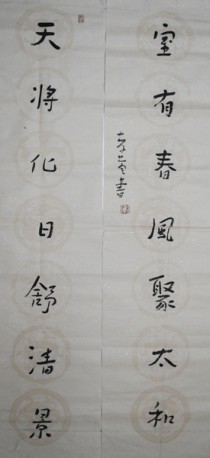 室有春風聚太和
天將化日舒清景